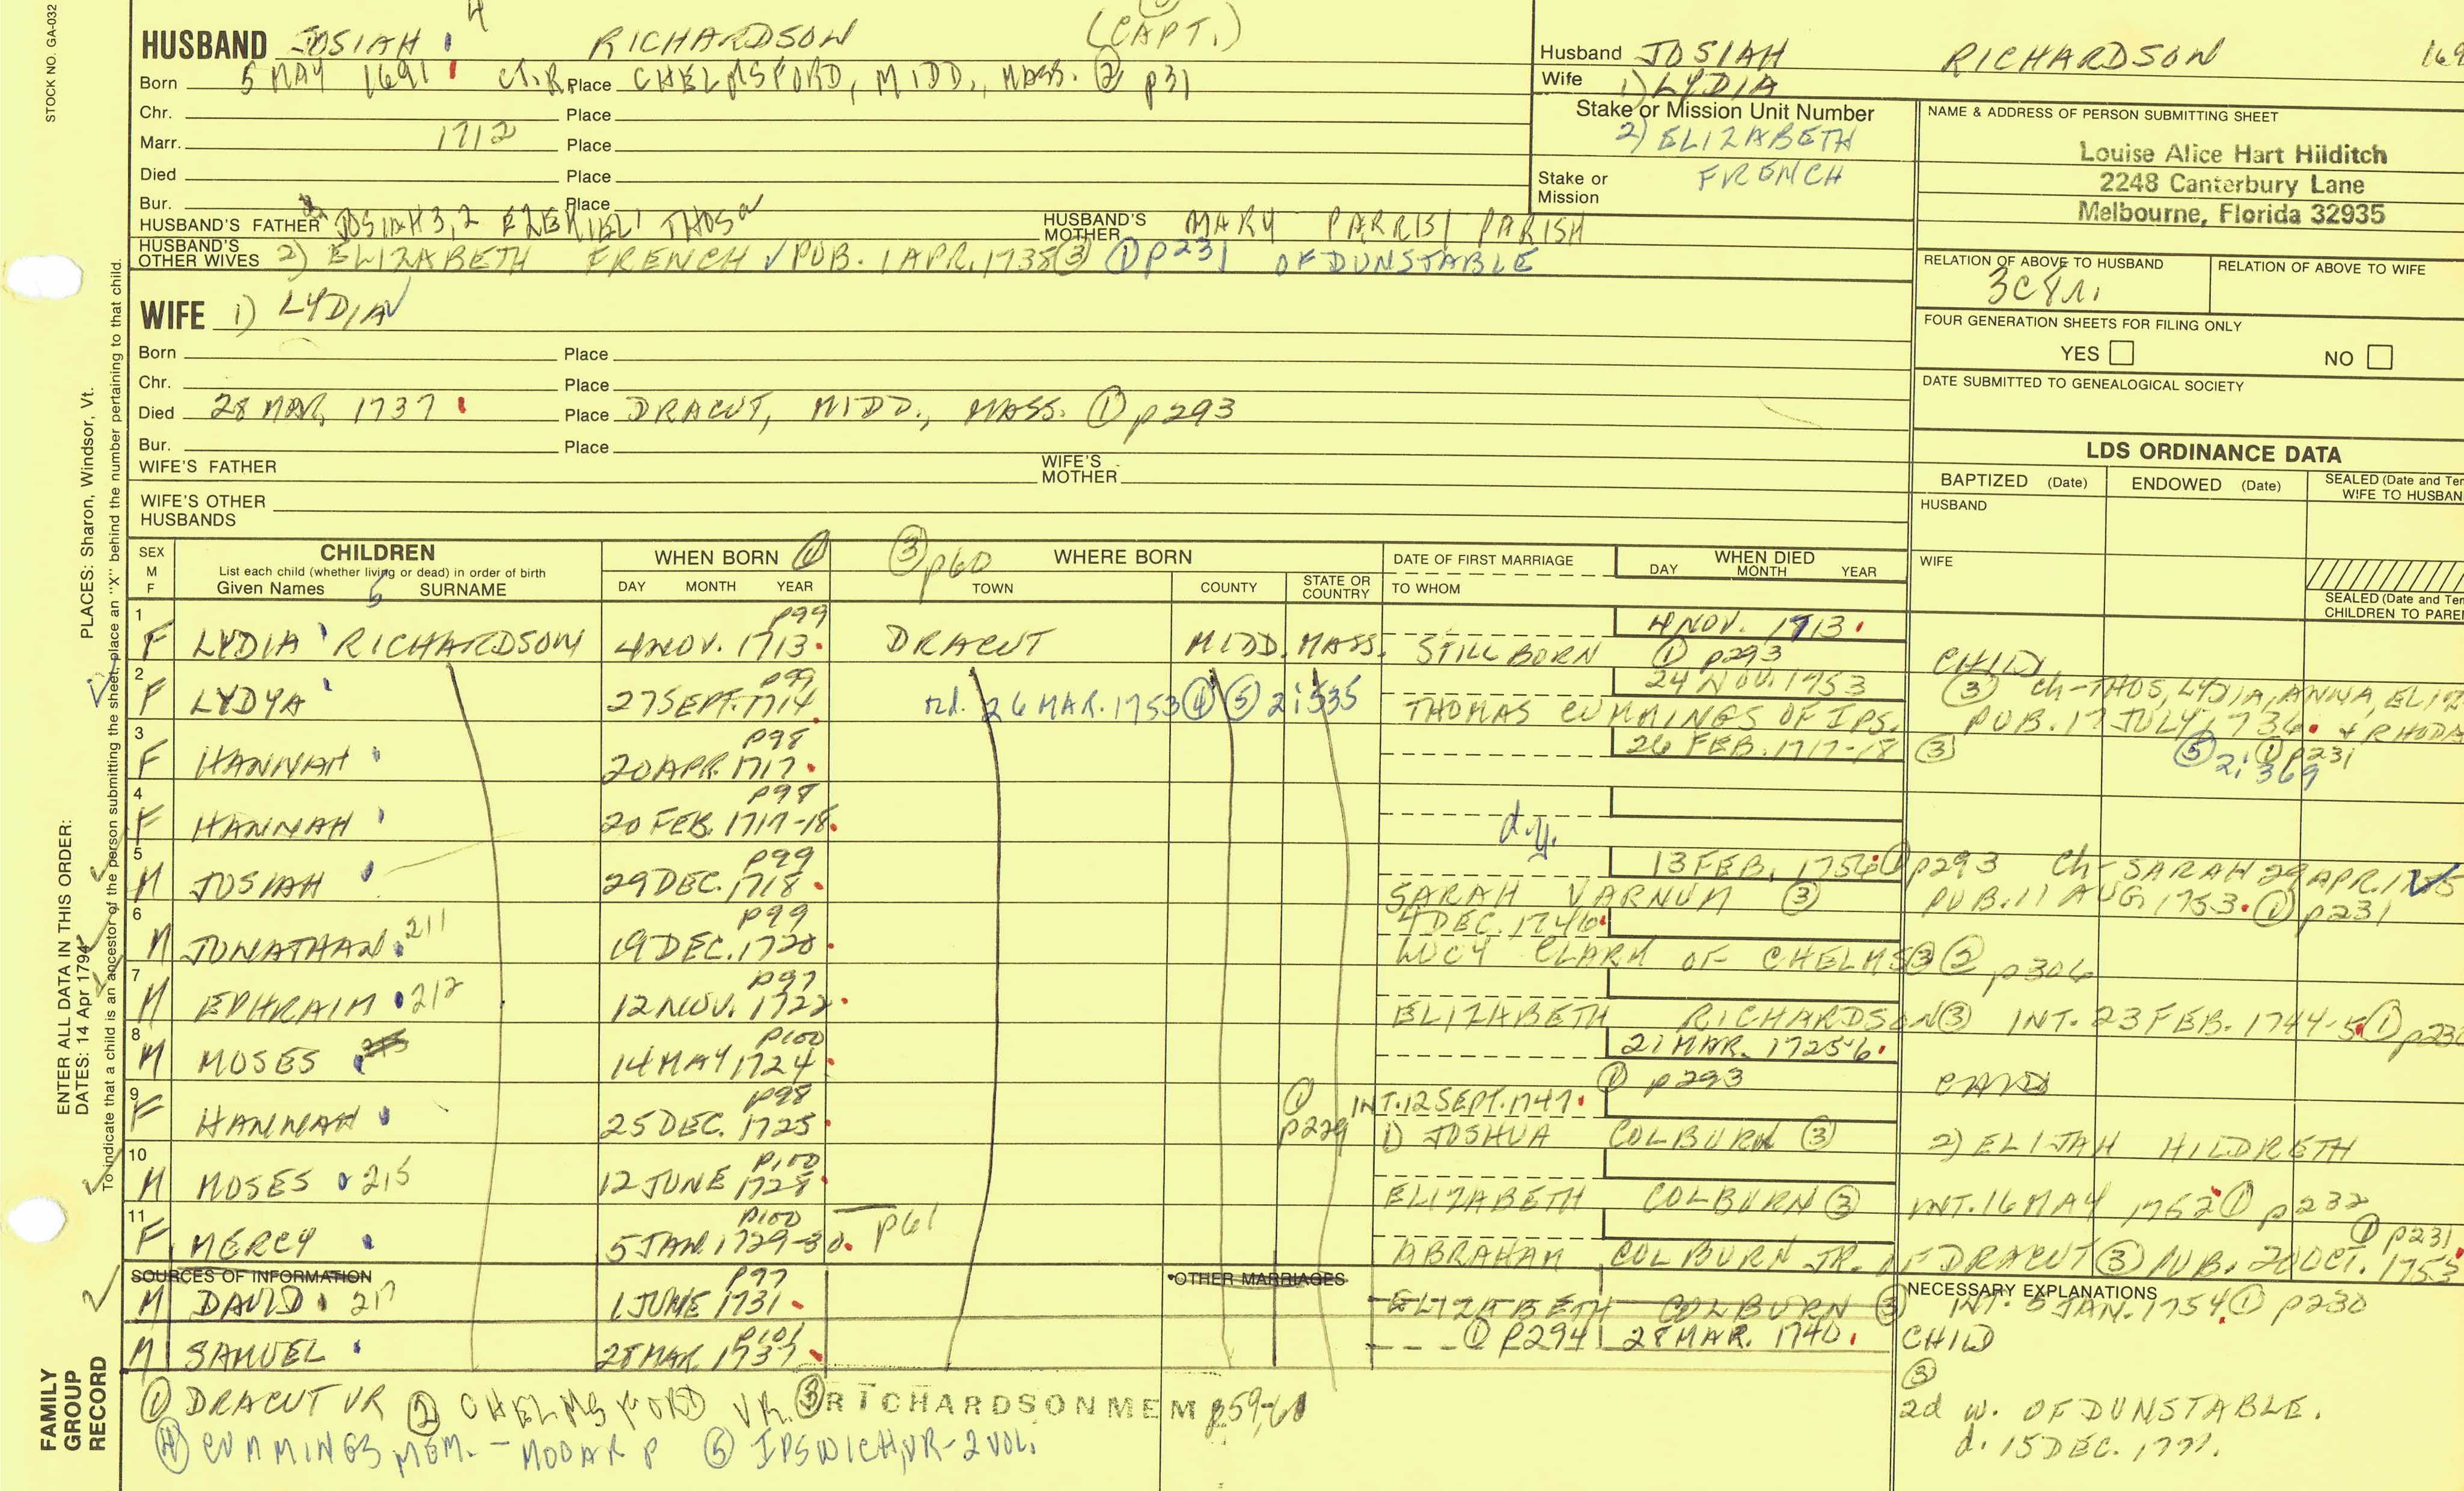 STOCK NO. GA-032
4
HUSBAND JOSIAH RICHARDSON (CAPT.)
Born 5 MAY 1691 CT.R Place CHELMSFORD, MIDD., MASS. ② p31
Chr. Place
Marr. 1712 Place
Died Place
Bur. Place
HUSBAND'S FATHER JOSIAH 3,2 EZEKIEL1 THOS
HUSBAND'S MOTHER MARY PARRIS/ PARISH
HUSBAND'S OTHER WIVES 2) ELIZABETH FRENCH ✓ PUB. 1 APR. 1738 ③ ① p231 OF DUNSTABLE
WIFE 1) LYDIA
Born Place
Chr. Place
Died 28 MAR, 1737 Place DRACUT, MIDD., MASS. ① p293
Bur. Place
WIFE'S FATHER WIFE'S MOTHER
WIFE'S OTHER HUSBANDS
Husband JOSIAH RICHARDSON 169
Wife 1) LYDIA
Stake or Mission Unit Number
2) ELIZABETH
FRENCH
Stake or Mission
NAME & ADDRESS OF PERSON SUBMITTING SHEET
Louise Alice Hart Hilditch
2248 Canterbury Lane
Melbourne, Florida 32935
RELATION OF ABOVE TO HUSBAND RELATION OF ABOVE TO WIFE
FOUR GENERATION SHEETS FOR FILING ONLY
YES NO
DATE SUBMITTED TO GENEALOGICAL SOCIETY
LDS ORDINANCE DATA
BAPTIZED (Date) ENDOWED (Date) SEALED (Date and Tem WIFE TO HUSBAN
HUSBAND
WIFE
SEALED (Date and Tem CHILDREN TO PARE
SEX M F
CHILDREN
List each child (whether living or dead) in order of birth
Given Names SURNAME
WHEN BORN ①
DAY MONTH YEAR
③ p60 WHERE BORN
TOWN COUNTY STATE OR COUNTRY
DATE OF FIRST MARRIAGE
TO WHOM
WHEN DIED
DAY MONTH YEAR
1 F LYDIA RICHARDSON p99 4 NOV. 1713 DRACUT MIDD. MASS. STILLBORN 4 NOV. 1713 ① p293 CHILD
2 F LYDYA p99 27 SEPT. 1714 rd. 26 MAR. 1753 ④ ⑤ 2:535 24 NOV. 1753 THOMAS CUMMINGS OF IPS. ③ Ch-THOS, LYDIA, ANNA, ELIZ
PUB. 17 JULY 1736 + RHODA
① p231
⑤ 2:369
3 F HANNAH p98 20 APR. 1717 26 FEB. 1717-18 ③
4 F HANNAH p98 20 FEB. 1717-18 d.y.
5 M JOSIAH p99 29 DEC. 1718 13 FEB. 1756 ① p293 Ch- SARAH 29 APR. 17
SARAH VARNUM ③ PUB. 11 AUG 1753 ① p231
6 M JONATHAN 211 p99 19 DEC. 1720 4 DEC. 1746
LUCY CLARK OF CHELMS ③ ② p306
7 M EPHRAIM 212 p97 12 NOV. 1722 ELIZABETH RICHARDSON ③ INT. 23 FEB. 1744-5 ① p230
8 M MOSES p100 14 MAY 1724 21 MAR. 1725-6
① p293 CHILD
9 F HANNAH p98 25 DEC. 1725 ① p229 INT. 12 SEPT. 1747
1) JOSHUA COLBURN ③ 2) ELIJAH HILDRETH
10 M MOSES 215 p100 12 JUNE 1728 ELIZABETH COLBURN ③ INT. 16 MAY 1752 ① p232
11 F MERCY p100 5 JAN. 1729-30 p61 ABRAHAM COLBURN JR. OF DRACUT ③ PUB. 20 OCT. 1753 ① p231
SOURCES OF INFORMATION OTHER MARRIAGES NECESSARY EXPLANATIONS
M DAVID 217 p97 1 JUNE 1731 ELIZABETH COLBURN ③ INT. 5 JAN. 1754 ① p230
M SAMUEL p101 28 MAR. 1737 ① p294 28 MAR. 1740 CHILD
③
2d w. OF DUNSTABLE.
d. 15 DEC. 1777.
① DRACUT VR ② CHELMSFORD VR. ③ RICHARDSON MEM p59-61
④ CUMMINGS MEM. - MOOAR p ⑤ IPSWICH VR-2 VOL.
ENTER ALL DATA IN THIS ORDER:
DATES: 14 Apr 1794 PLACES: Sharon, Windsor, Vt.
To indicate that a child is an ancestor of the person submitting the sheet, place an "X" behind the number pertaining to that child.
FAMILY GROUP RECORD